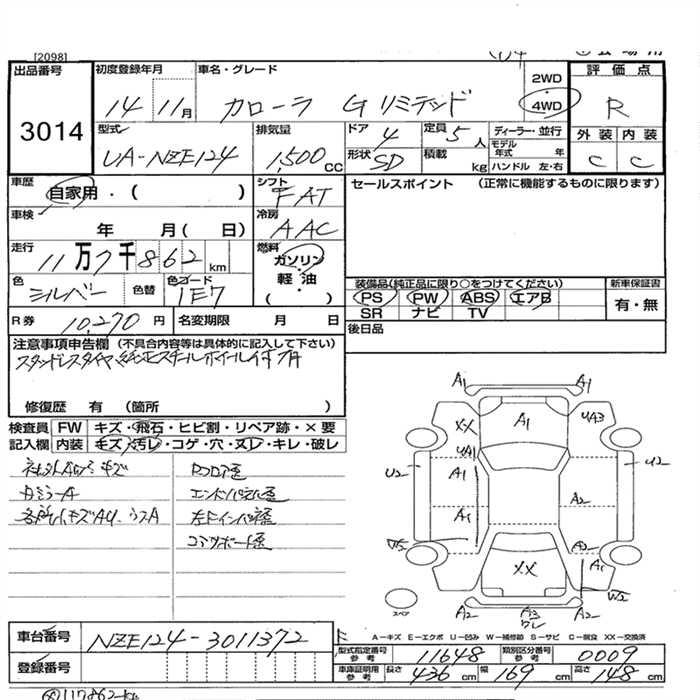 [2098]
出品番号 初度登録年月 車名・グレード 2WD 評価点
3014 14 11月 カローラ Gリミテッド 4WD R
型式 排気量 ドア 4 定員 5人 ディーラー・並行 外装 内装
UA-NZE124 1,500CC 形状 SD 積載 kg モデル年式 年 ハンドル 左・右 C C
車歴 自家用・( ) シフト FAT セールスポイント (正常に機能するものに限ります)
車検 年 月( 日) 冷房 AAC
走行 11万7千862km 燃料 ガソリン 軽油 ( )
色 シルバー 色替 色コード 1E7
装備品(純正品に限り○をつけてください) 新車保証書
PS PW ABS エアB 有・無
SR ナビ TV
R券 10,270円 名変期限 月 日 後日品
注意事項申告欄 (不具合内容等は具体的に記入して下さい)
スタッドレスタイヤ純正スチールホイール付
修復歴 有 (箇所 )
検査員 FW キズ・飛石・ヒビ割・リペア跡・×要
記入欄 内装 キズ・汚レ・コゲ・穴・ヌレ・キレ・破レ
A1 A1
XX A1 UA3
UA1
U2 A1 U2
A1 A2
A2
A1
XX
W2
スペア A2 A3 A2
A-キズ E-エクボ U-凹み W-補修跡 S-サビ C-腐食 XX-交換済
車台番号 NZE124-3011372
型式指定番号 参考 11648 類別区分番号 参考 0009
登録番号
車庫証明用 参考 長さ 436cm 幅 169cm 高さ 148cm